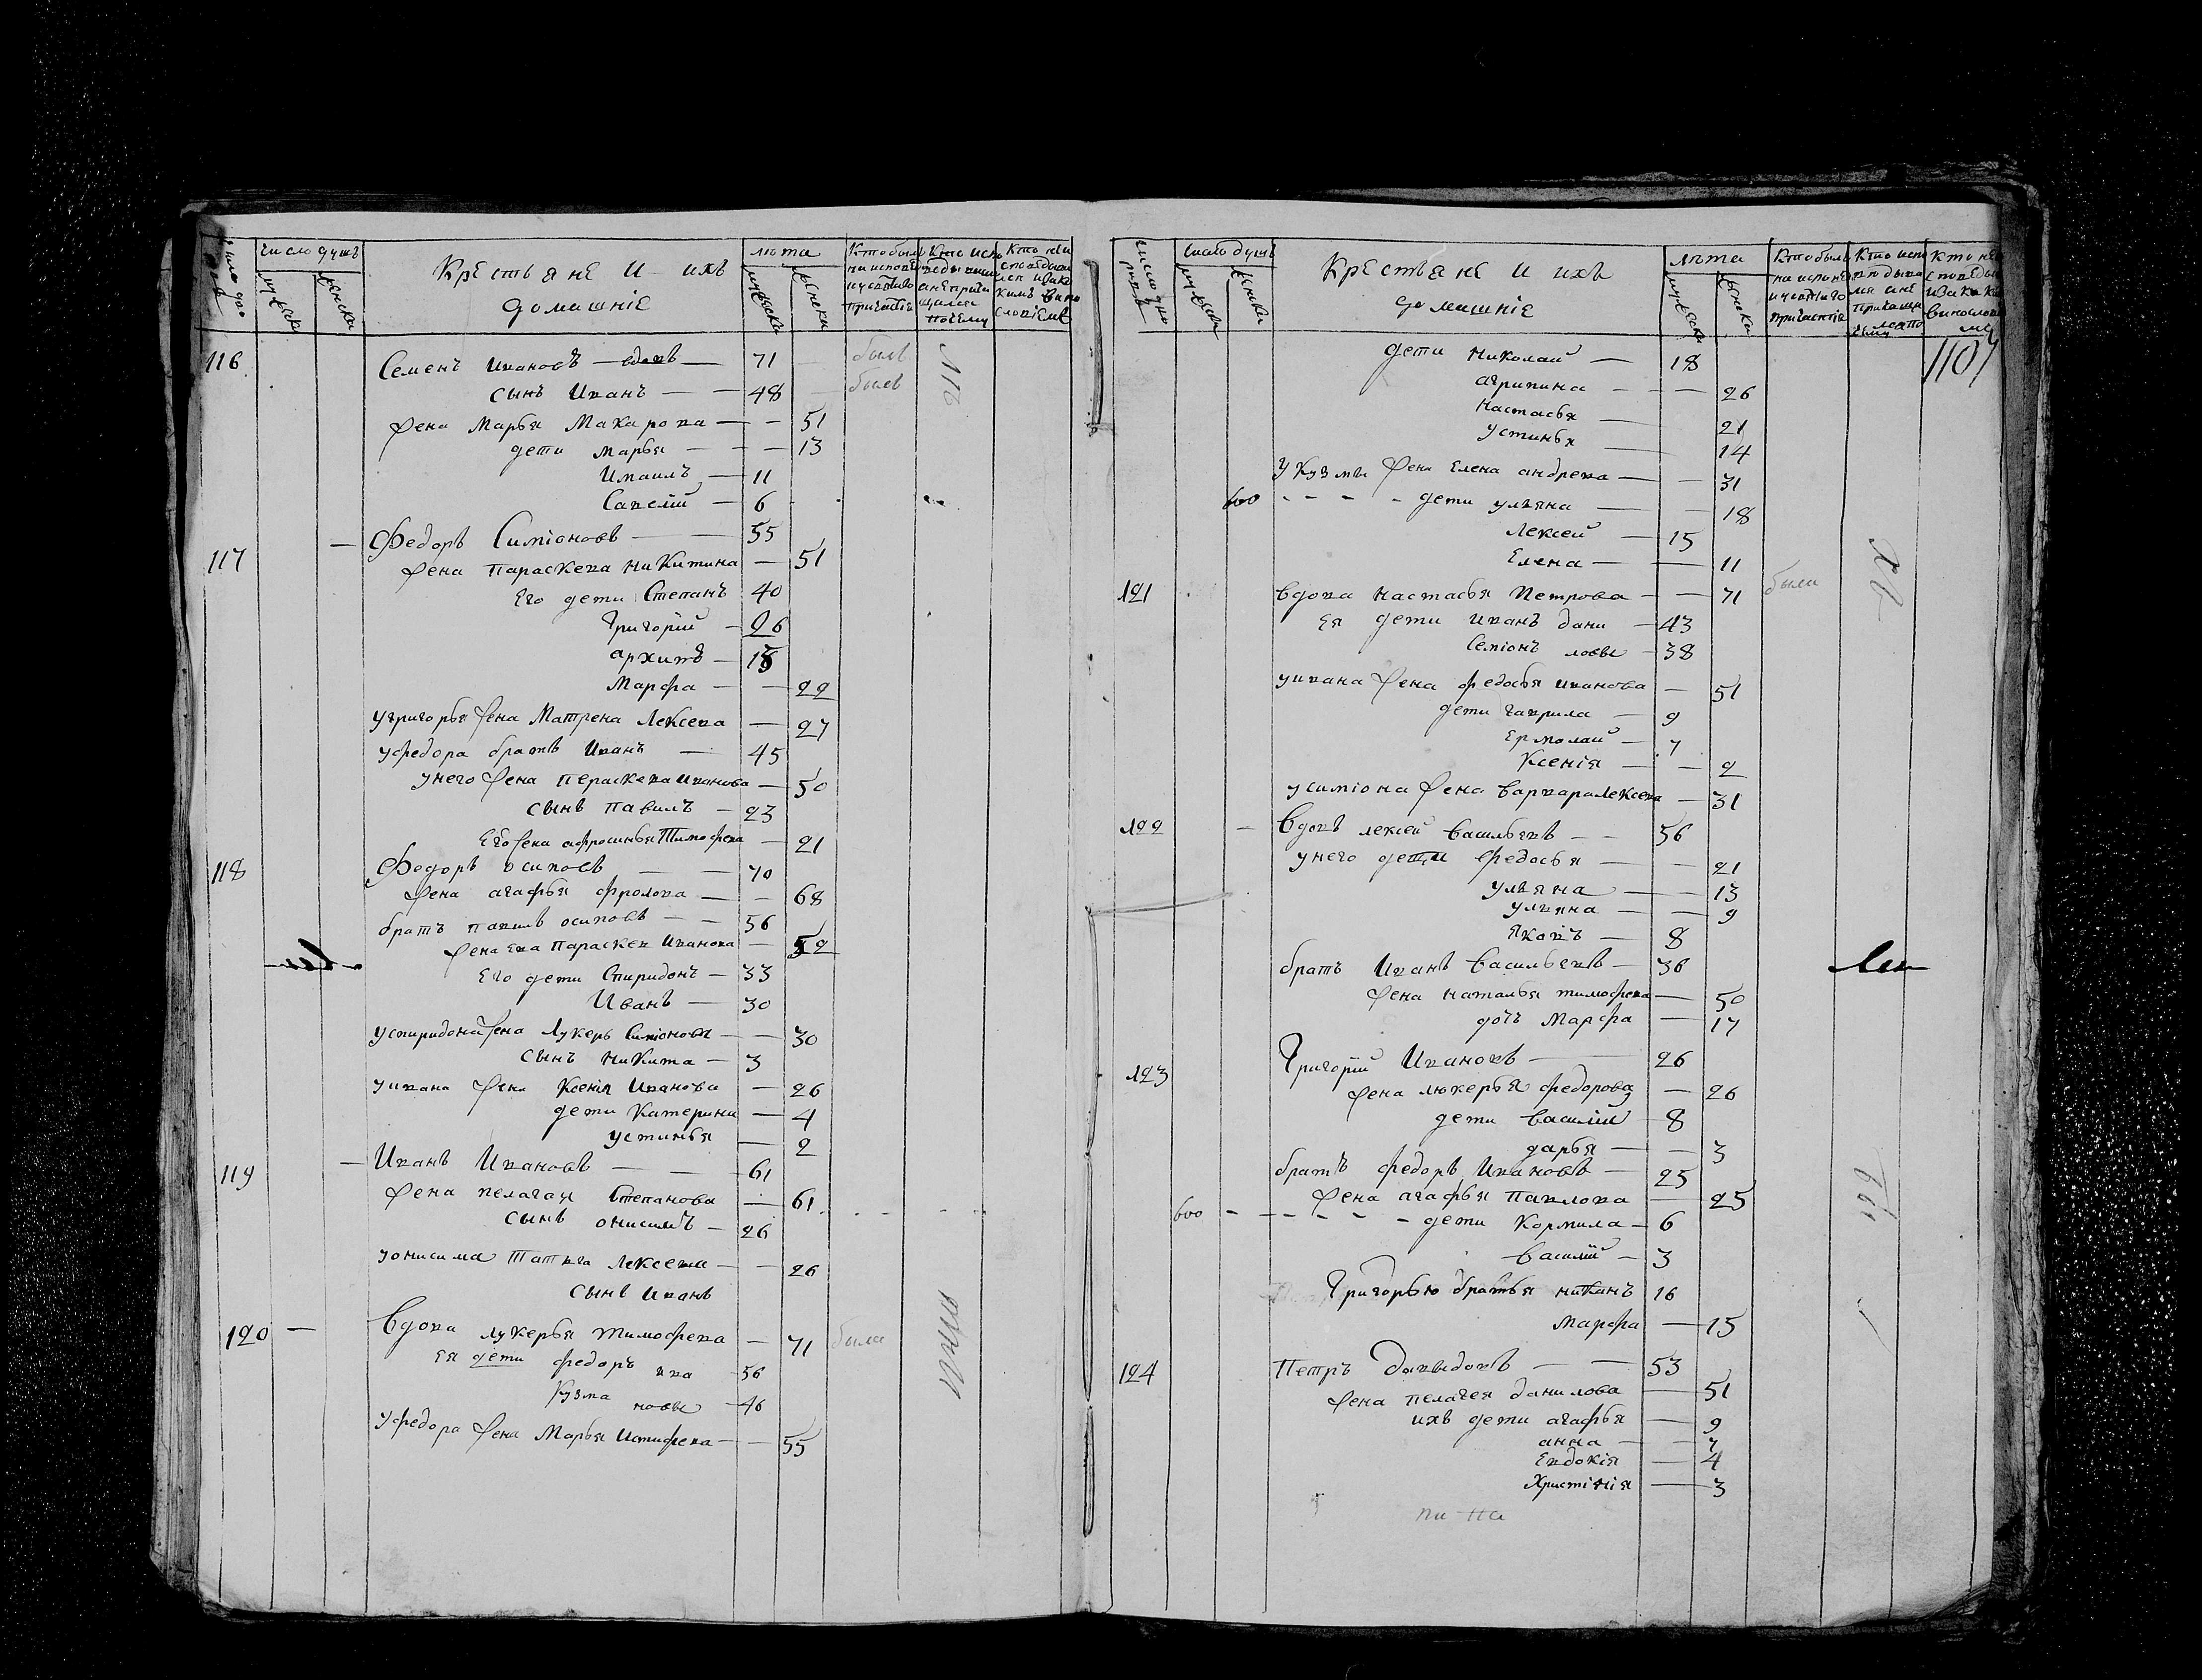 число дво
ровъ
число душъ
мужеска
женска
Крестьяне и ихъ
домашніе
лѣта
мужеска
женска
Кто былъ
на исповѣ
и у святаго
причастія
Кто испо
ведывались
а не прича
щался
почему
Кто не и
споведыв
лся и за ка
кимъ вино
словіемъ
116
Семенъ Ивановъ — вдовъ — 71 былъ
сынъ Иванъ — 48 былъ
жена Марья Макарова — 51
дети Марья — 13
Михаилъ — 11
Савелій — 6
117
Федоръ Симіоновъ — 55
жена Параскева Никитина — 51
Его дети Степанъ 40
Григорій — 26
архипъ — 18
Марфа — 22
у григорья жена Матрена Лексева — 27
у федора братъ Иванъ — 45
у него жена Пераскева Иванова — 50
сынъ Павилъ — 23
Его жена афросинья Тимофева — 21
118
Федоръ осиповъ — 70
жена агафья фролова — 68
братъ павилъ осиповъ — 56
жена Ева Параскев Иванова — 52
Его дети Спиридонъ — 33
Иванъ — 30
у спиридона жена Лукерь Симіонова — 30
сынъ Никита — 3
у ивана жена Ксенія Иванова — 26
дети Катерина — 4
устинья — 2
119
Иванъ Ивановъ — 61
жена пелагая Степанова — 61
сынъ онисимъ — 26
у онисима Татьяа Лексева — 26
сынъ иванъ
120
Вдова лукерья тимофева — 71 была
Ея дети федоръ ива — 56
Кузма новы — 46
у федора жена Марья Истифева — 55
число дво
ровъ
число душъ
мужеска
женска
Крестьяне и ихъ
домашніе
лѣта
мужеска
женска
Кто былъ
на исповѣ
и у святаго
причастія
Кто испо
ведыва
ся а не
причаща
лся по
чему
Кто не
споведы
и за каки
винослові
мъ
1107
дети Николай — 18
агрипина — 26
настасья — 21
устинья — 14
у Кузмы жена Елена андрева — 31
600 дети ульяна — 18
Лексей — 15
Елена — 11
121
вдова настасья Петрова — 71 была
Ея дети иванъ дани — 43
Семіонъ ловы — 38
у ивана жена федосья иванова — 51
дети гаврила — 9
Ермолай — 7
Ксенія — 2
у симіона жена варвара Лексева — 31
122
Вдовъ лексей васильевъ — 56
у него дети федосья — 21
ульяна — 13
ульяна — 9
Яковъ — 8
братъ Иванъ васильевъ — 36
жена наталья тимофева — 50
дочь Марфа — 17
123
Григорій Ивановъ — 26
жена люкерья федорова — 26
дети василій — 8
дарья — 3
братъ федоръ Ивановъ — 25
жена агафья павлова — 25
600 дети Кормила — 6
василій — 3
Григорью братья иванъ 16
Марфа — 15
124
Петръ Давыдовъ — 53
жена пелагея данилова — 51
ихъ дети агафья — 9
анна — 7
Евдокія — 4
Христинія — 3